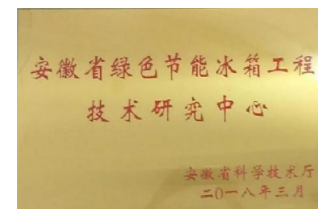 安徽省绿色节能冰箱工程
技术研究中心
安徽省科学技术厅
二〇一八年三月